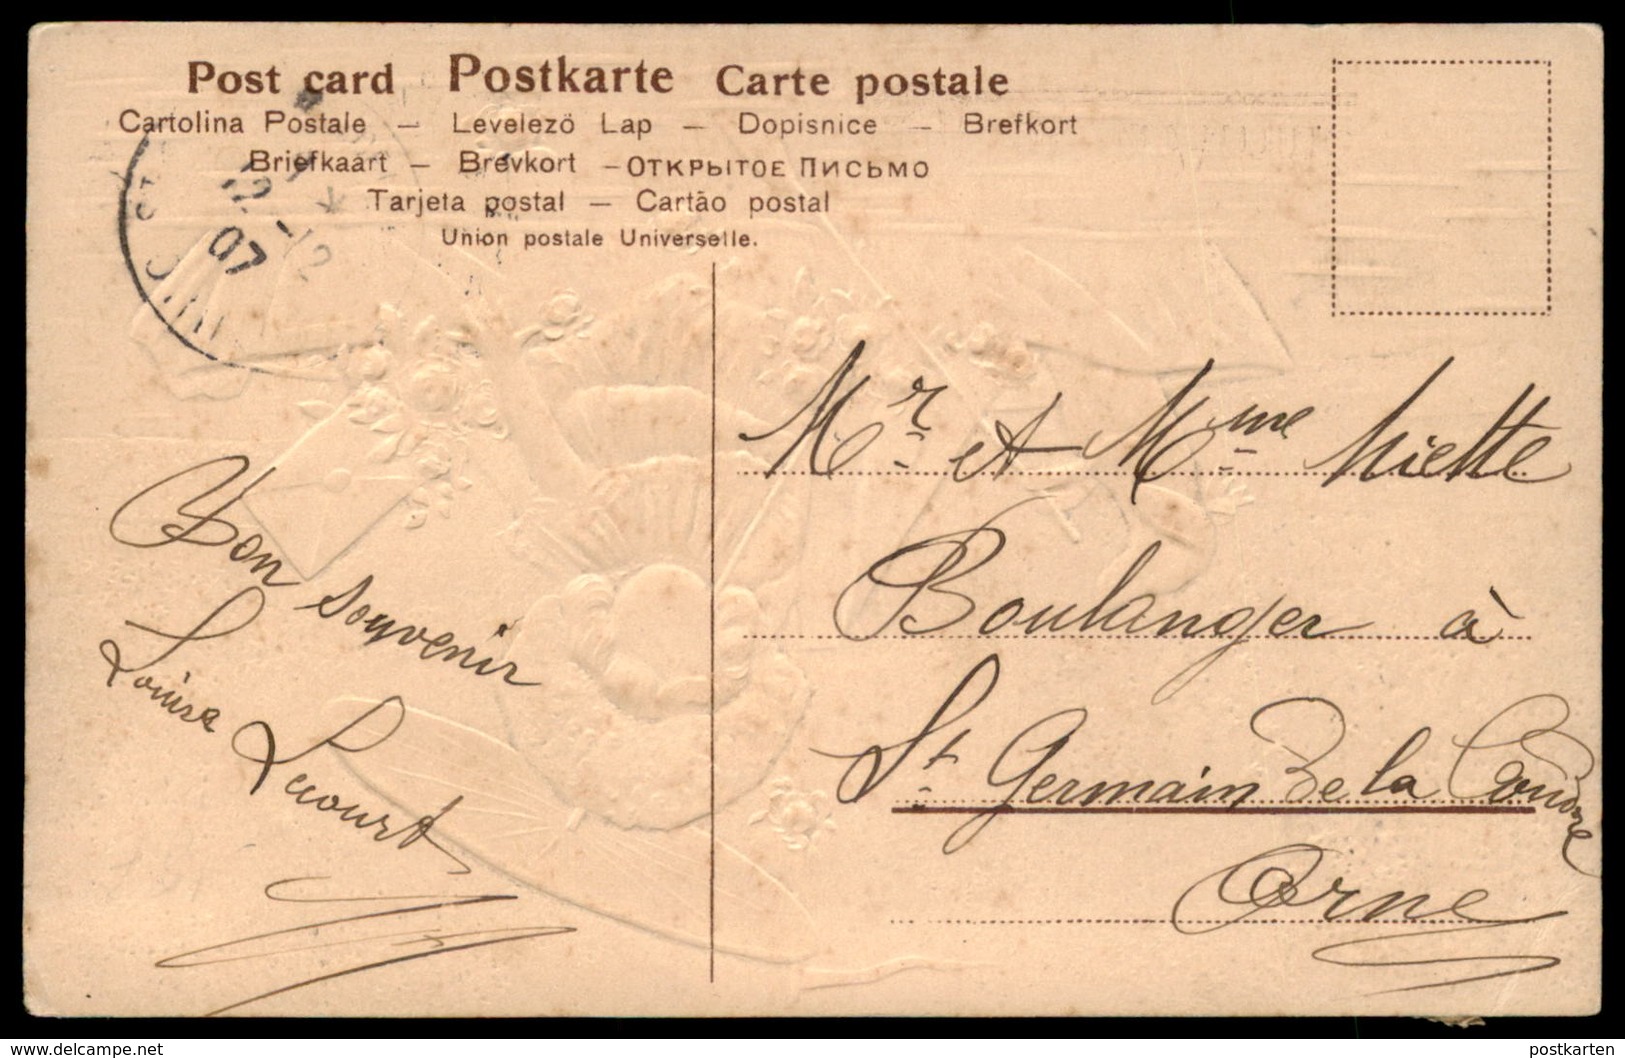 Post card Postkarte Carte postale
Cartolina Postale – Levelezö Lap – Dopisnice – Brefkort
Briefkaart – Brevkort – Открытое Письмо
Tarjeta postal – Cartão postal
Union postale Universelle.
12 - 12
07
Bon souvenir
Louise
Lecourt
Mr et Mme Miette
Boulanger à
St Germain De la Coudre
Orne
www.delcampe.net
postkarten